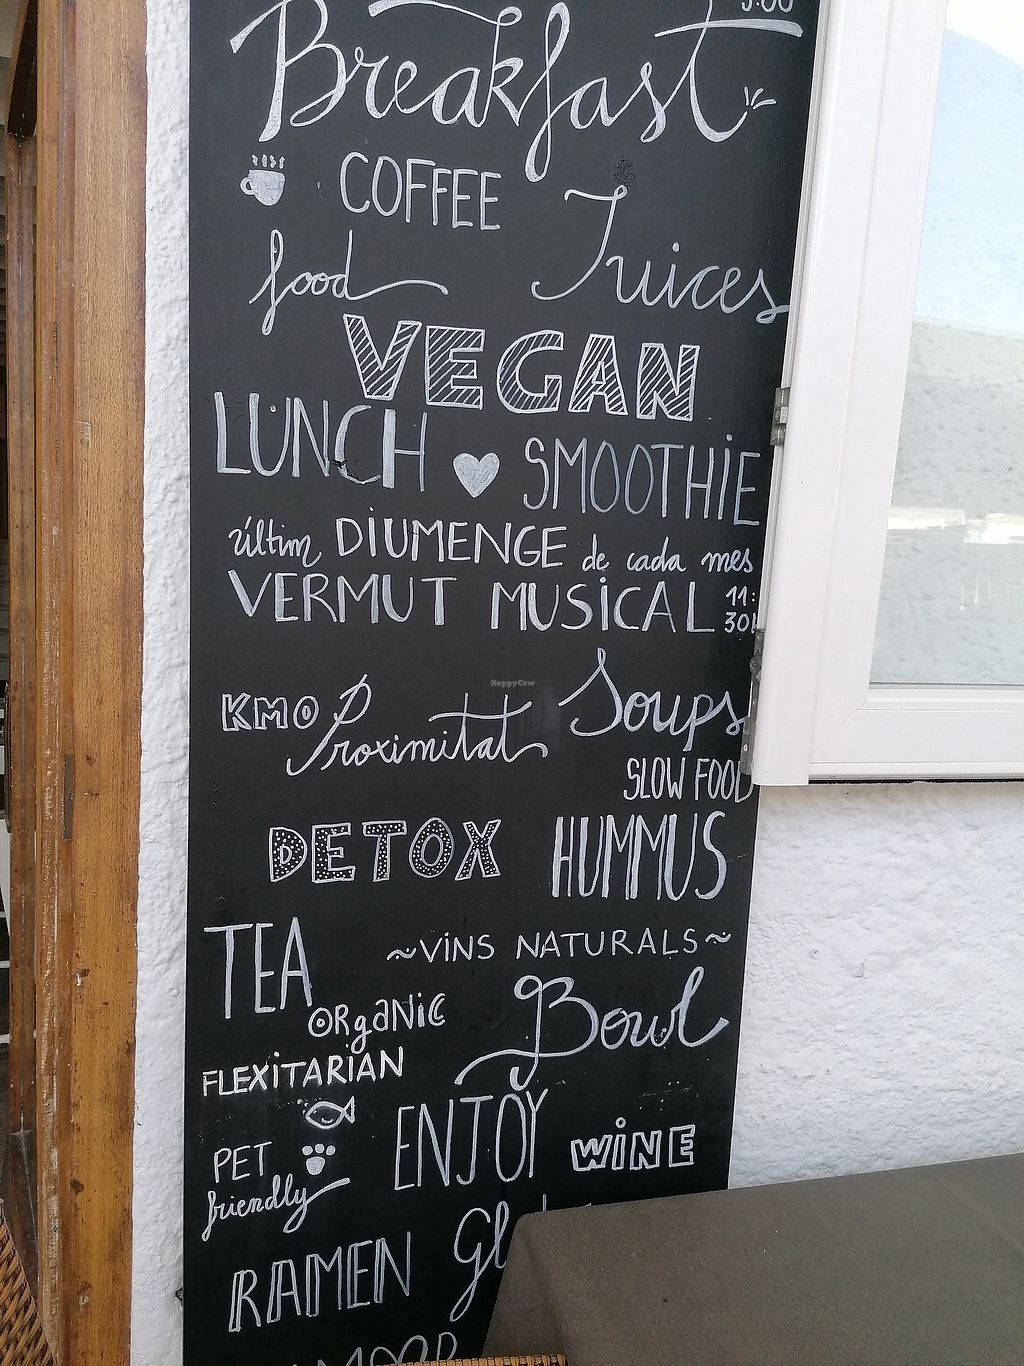 Breakfast
COFFEE
Juices
food
VEGAN
LUNCH SMOOTHIE
últim DIUMENGE de cada mes
VERMUT MUSICAL 11:30h
HappyCow
KM0 Proximitat
Soups
SLOW FOOD
DETOX
HUMMUS
TEA
~VINS NATURALS~
ORGANIC
Bowl
FLEXITARIAN
ENJOY
WINE
PET
friendly
RAMEN